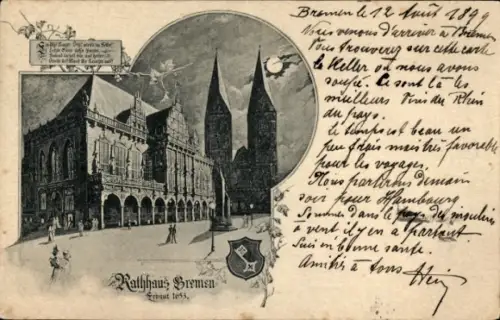 Bremen le 12 Août 1899
Nous venons d'arriver à Brême
Vous trouverez sur cette carte
le Keller où nous avons
soupé. Ce sont là les
meilleurs Vins du Rhin
du pays.
Le temps est beau un
peu frais mais très favorable
pour les voyages.
Nous partirons demain
soir pour Hambourg
Sommes dans le pays des moulins
à vent il y en a partout
Suis en bonne santé.
Amitiés à tous
Rathhaus Bremen
Erbaut 1653.